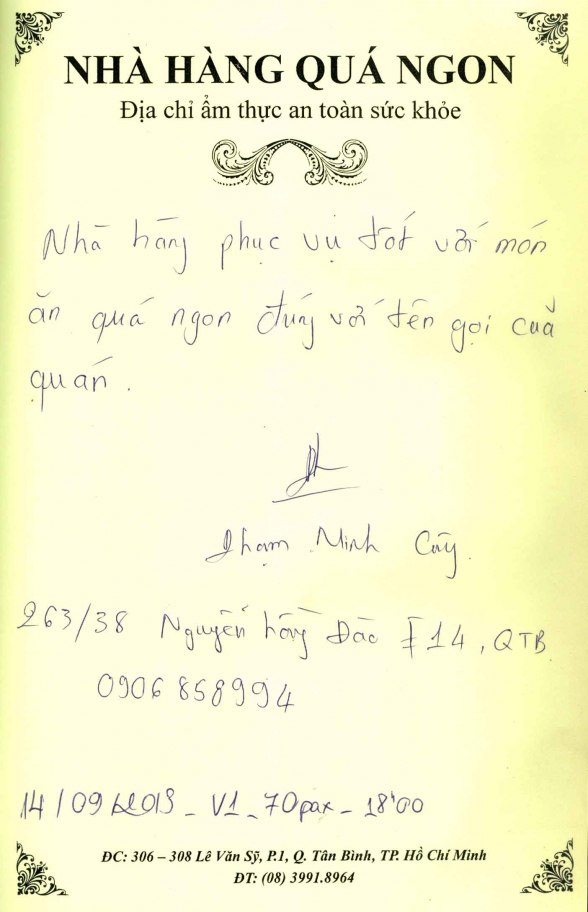 NHÀ HÀNG QUÁ NGON
Địa chỉ ẩm thực an toàn sức khỏe
Nhà hàng phục vụ tốt với món
ăn quá ngon đúng với tên gọi của
quán.
Phạm Minh
263/38 Nguyễn Hồng Đào F14, QTB
0906 858994
14/09/2013 - V1 - 70pax - 18'00
ĐC: 306 – 308 Lê Văn Sỹ, P.1, Q. Tân Bình, TP. Hồ Chí Minh
ĐT: (08) 3991.8964